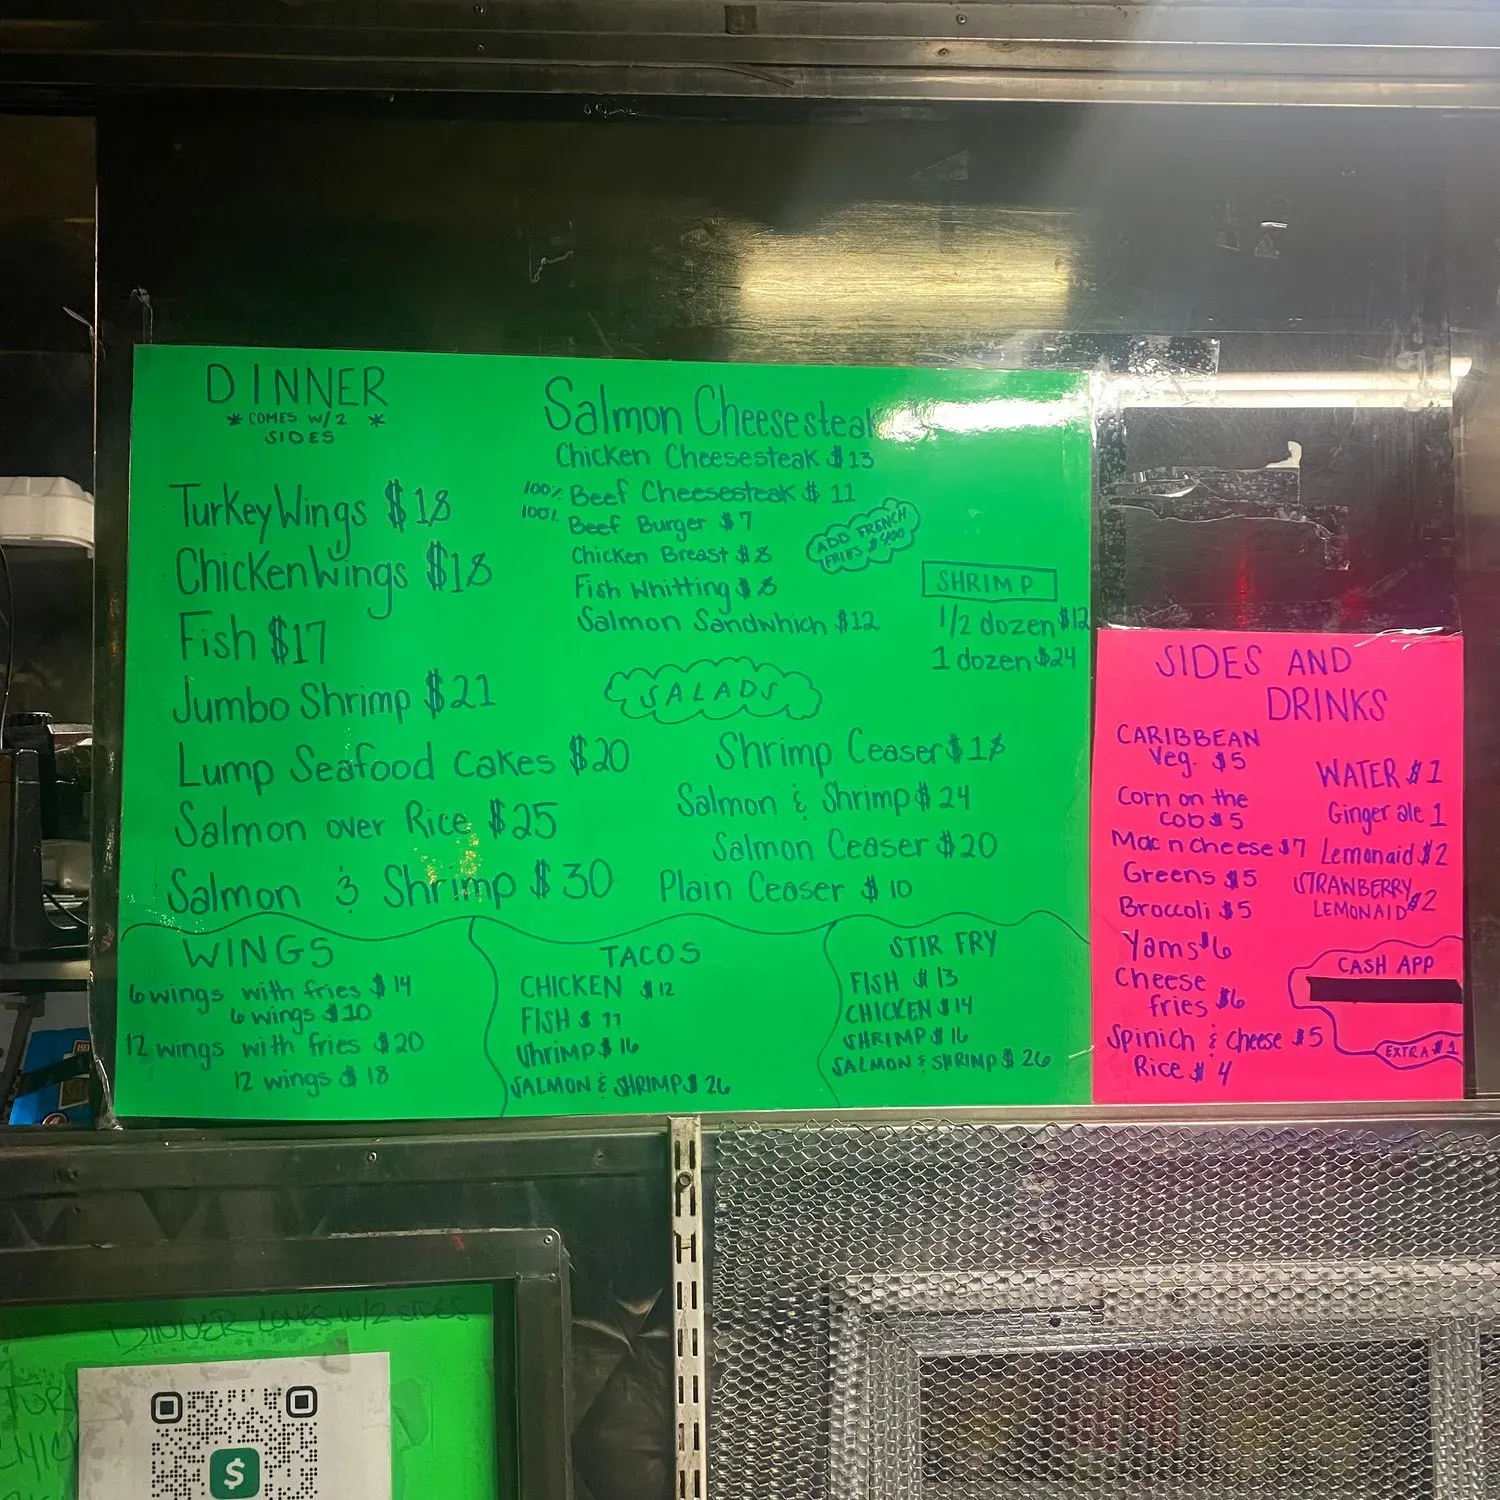 DINNER
* COMES W/2 *
SIDES
Turkey Wings $18
Chicken Wings $18
Fish $17
Jumbo Shrimp $21
Lump Seafood cakes $20
Salmon over Rice $25
Salmon & Shrimp $30
Salmon Cheesesteak
Chicken Cheesesteak $13
100% Beef Cheesesteak $11
100% Beef Burger $7
Chicken Breast $8
Fish Whitting $8
Salmon Sandwhich $12
ADD FRENCH
FRIES $400
SHRIMP
1/2 dozen $12
1 dozen $24
SALADS
Shrimp Ceaser $18
Salmon & Shrimp $24
Salmon Ceaser $20
Plain Ceaser $10
WINGS
6 wings with fries $14
6 wings $10
12 wings with fries $20
12 wings $18
TACOS
CHICKEN $12
FISH $11
Shrimp $16
SALMON & SHRIMP $26
STIR FRY
FISH $13
CHICKEN $14
SHRIMP $16
SALMON & SHRIMP $26
SIDES AND
DRINKS
CARIBBEAN
Veg. $5
Corn on the
cob $5
Mac n cheese $7
Greens $5
Broccoli $5
Yams $6
Cheese
fries $6
Spinich & cheese $5
Rice $4
WATER $1
Ginger ale 1
Lemonaid $2
STRAWBERRY
LEMONAID $2
CASH APP
EXTRA $1
DINNER COMES W/2 SIDES
$